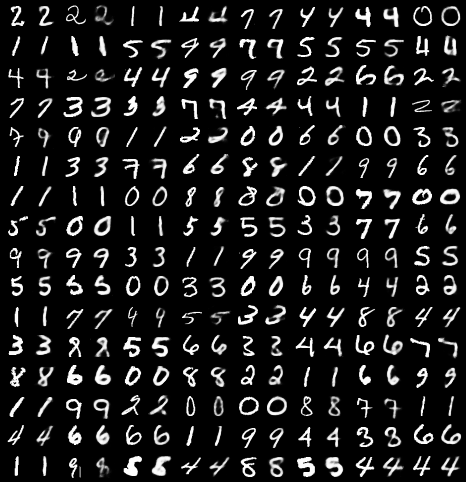 2 2 2 2 1 1 4 4 7 7 4 4 4 4 0 0
1 1 1 1 5 5 9 9 7 7 5 5 5 5 4 4
4 4 2 2 4 4 9 9 9 9 2 2 6 6 2 2
7 7 3 3 3 3 7 7 4 4 4 4 1 1 2 2
7 9 9 9 1 1 2 2 0 0 6 6 0 0 3 3
1 1 3 3 7 7 6 6 8 8 1 1 9 9 6 6
1 1 1 1 0 0 8 8 8 8 0 0 7 7 0 0
5 5 0 0 1 1 5 5 5 5 3 3 7 7 6 6
9 9 9 9 3 3 1 1 9 9 9 9 9 9 5 5
5 5 5 5 0 0 3 3 0 0 6 6 4 4 2 2
1 1 7 7 4 4 5 5 3 3 4 4 8 8 4 4
3 3 8 8 5 5 6 6 3 3 4 4 6 6 7 7
8 8 6 6 0 0 8 8 2 2 1 1 6 6 9 9
1 1 9 9 2 2 0 0 0 0 8 8 7 7 1 1
4 4 6 6 6 6 1 1 9 9 4 4 3 3 6 6
1 1 9 9 8 8 4 4 8 8 5 5 4 4 4 4